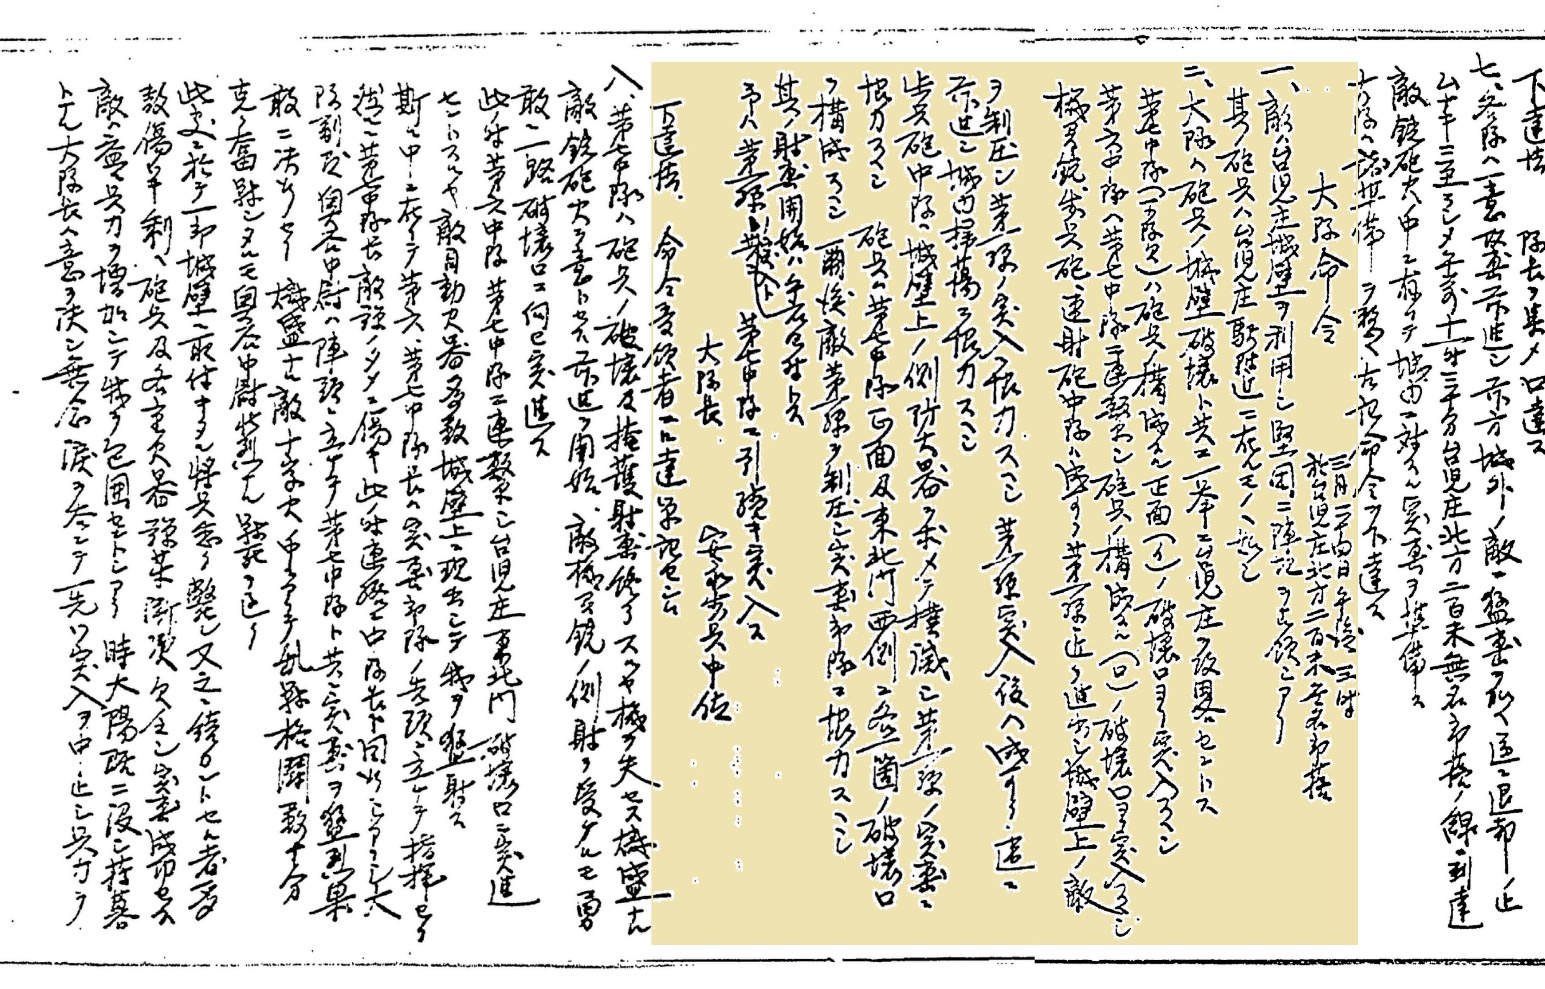 下達法 隊長ヲ集メ口達ス
七、各隊ハ一意攻撃前進シ前方城外ノ敵ハ猛撃ヲ 遂ニ退却ノ止
ムナキニ至ラシメ午前十一時三十分台児庄北方二百米無名部落ノ線ニ到達
敵銃砲火ノ中ニ在リテ城内ニ対スル突撃ヲ準備ス
大隊ハ 準備ヲ整ヘ左記命令ヲ下達ス
大隊命令 三月二十 日午後三時
於台児庄北方二百米無名部落
一、敵ハ台児庄城壁ヲ利用シ堅固ニ陣地ヲ占領シアリ
其ノ砲兵ハ台児庄駅附近ニ在ルモノヽ如シ
二、大隊ハ砲兵ノ城壁破壊ト共ニ一挙台児庄ヲ攻略セントス
第七中隊(一小隊欠)ハ砲兵ノ構成スル正面(イ)ノ破壊口ヨリ突入スヘシ
第六中隊ハ第七中隊ニ連繋シ砲兵構成スル(ロ)ノ破壊口ヨリ突入スヘシ
機関銃歩兵砲速射砲中隊ハ成ルヘク第一線近ク進出シ城壁上ノ敵
ヲ制圧シ第一線ノ突入ニ協力スヘシ 第一線突入後ハ成ルヘク速ニ
前進シ城内掃蕩ニ協力スヘシ
歩兵砲中隊ハ城壁上ノ側防火器ヲ求メテ撲滅シ第一線ノ突撃ニ
協力スヘシ 砲兵ハ第七中隊正面及東北門西側ニ各一箇ノ破壊口
ヲ構成スヘシ 爾後敵第一線ヲ制圧シ突撃部隊ニ協力スヘシ
其ノ射撃開始ハ午后四時トス
予ハ第一線ノ 第七中隊ニ引続キ突入ス
大隊長 安永歩兵中佐
下達法、命令受領者ニ口達筆記セシム
八、第七中隊ハ砲兵ノ破壊及掩護射撃終ルヤ機ヲ失セス熾盛ナル
敵銃砲火ヲ意トセス前進ヲ開始、敵機関銃ノ側射ヲ受ケルモ勇
敢ニ一路破壊口ニ向ヒ突進ス
此ノ時第六中隊第七中隊ニ連繋シ台児庄東北門破壊口ニ突進
セントスルヤ敵自動火器多数城壁上ニ現出シテ我ヲ猛射ス
斯ル中ニ在リテ第六、第七中隊長ハ突撃部隊ノ先頭ニ立チテ指揮セリ
 第七中隊長敵弾ノタメニ傷キ此ノ時連繋中隊長ト同行シアリシ大
隊副官奥谷中尉ハ陣頭ニ立チテ第七中隊ト共ニ突撃ヲ猛烈果
敢ニ決行セリ 熾盛ナル敵十字火中アリテ乱戦格闘数十分
克ク奮戦シタルモ奥谷中尉壮烈ナル戦死ヲ遂ク
此处ニ於テ一部城壁ニ取付キタル将兵悉ク斃レ又之ニ続カントセル者多
数傷キ剰ヘ砲兵及各重火器弾薬漸次欠乏シ突撃成功セス
敵ハ益々兵力ヲ増加シテ我ヲ包囲セントシアリ 時大陽既ニ没シ薄暮
トナル大隊長ハ意ヲ決シ無念涙ヲ呑ンテ一先ツ突入ヲ中止シ兵力ヲ